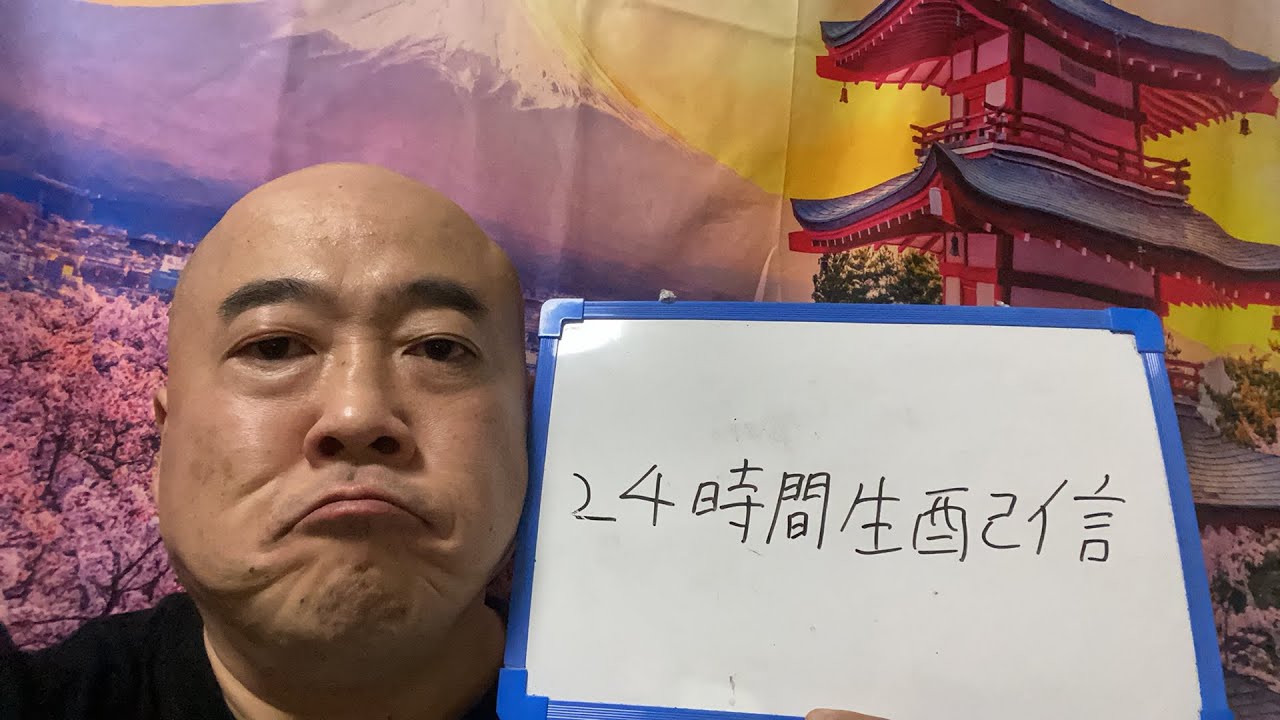 24時間生配信